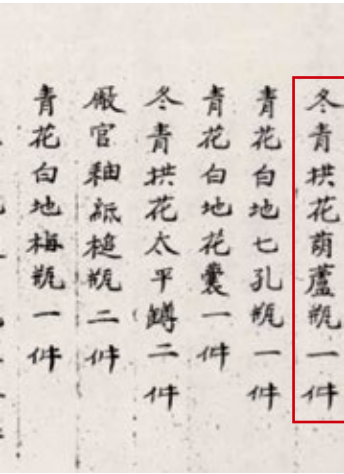 冬青拱花葫蘆瓶一件
青花白地七孔瓶一件
青花白地花囊一件
冬青拱花太平罇二件
厰官釉紙槌瓶二件
青花白地梅瓶一件